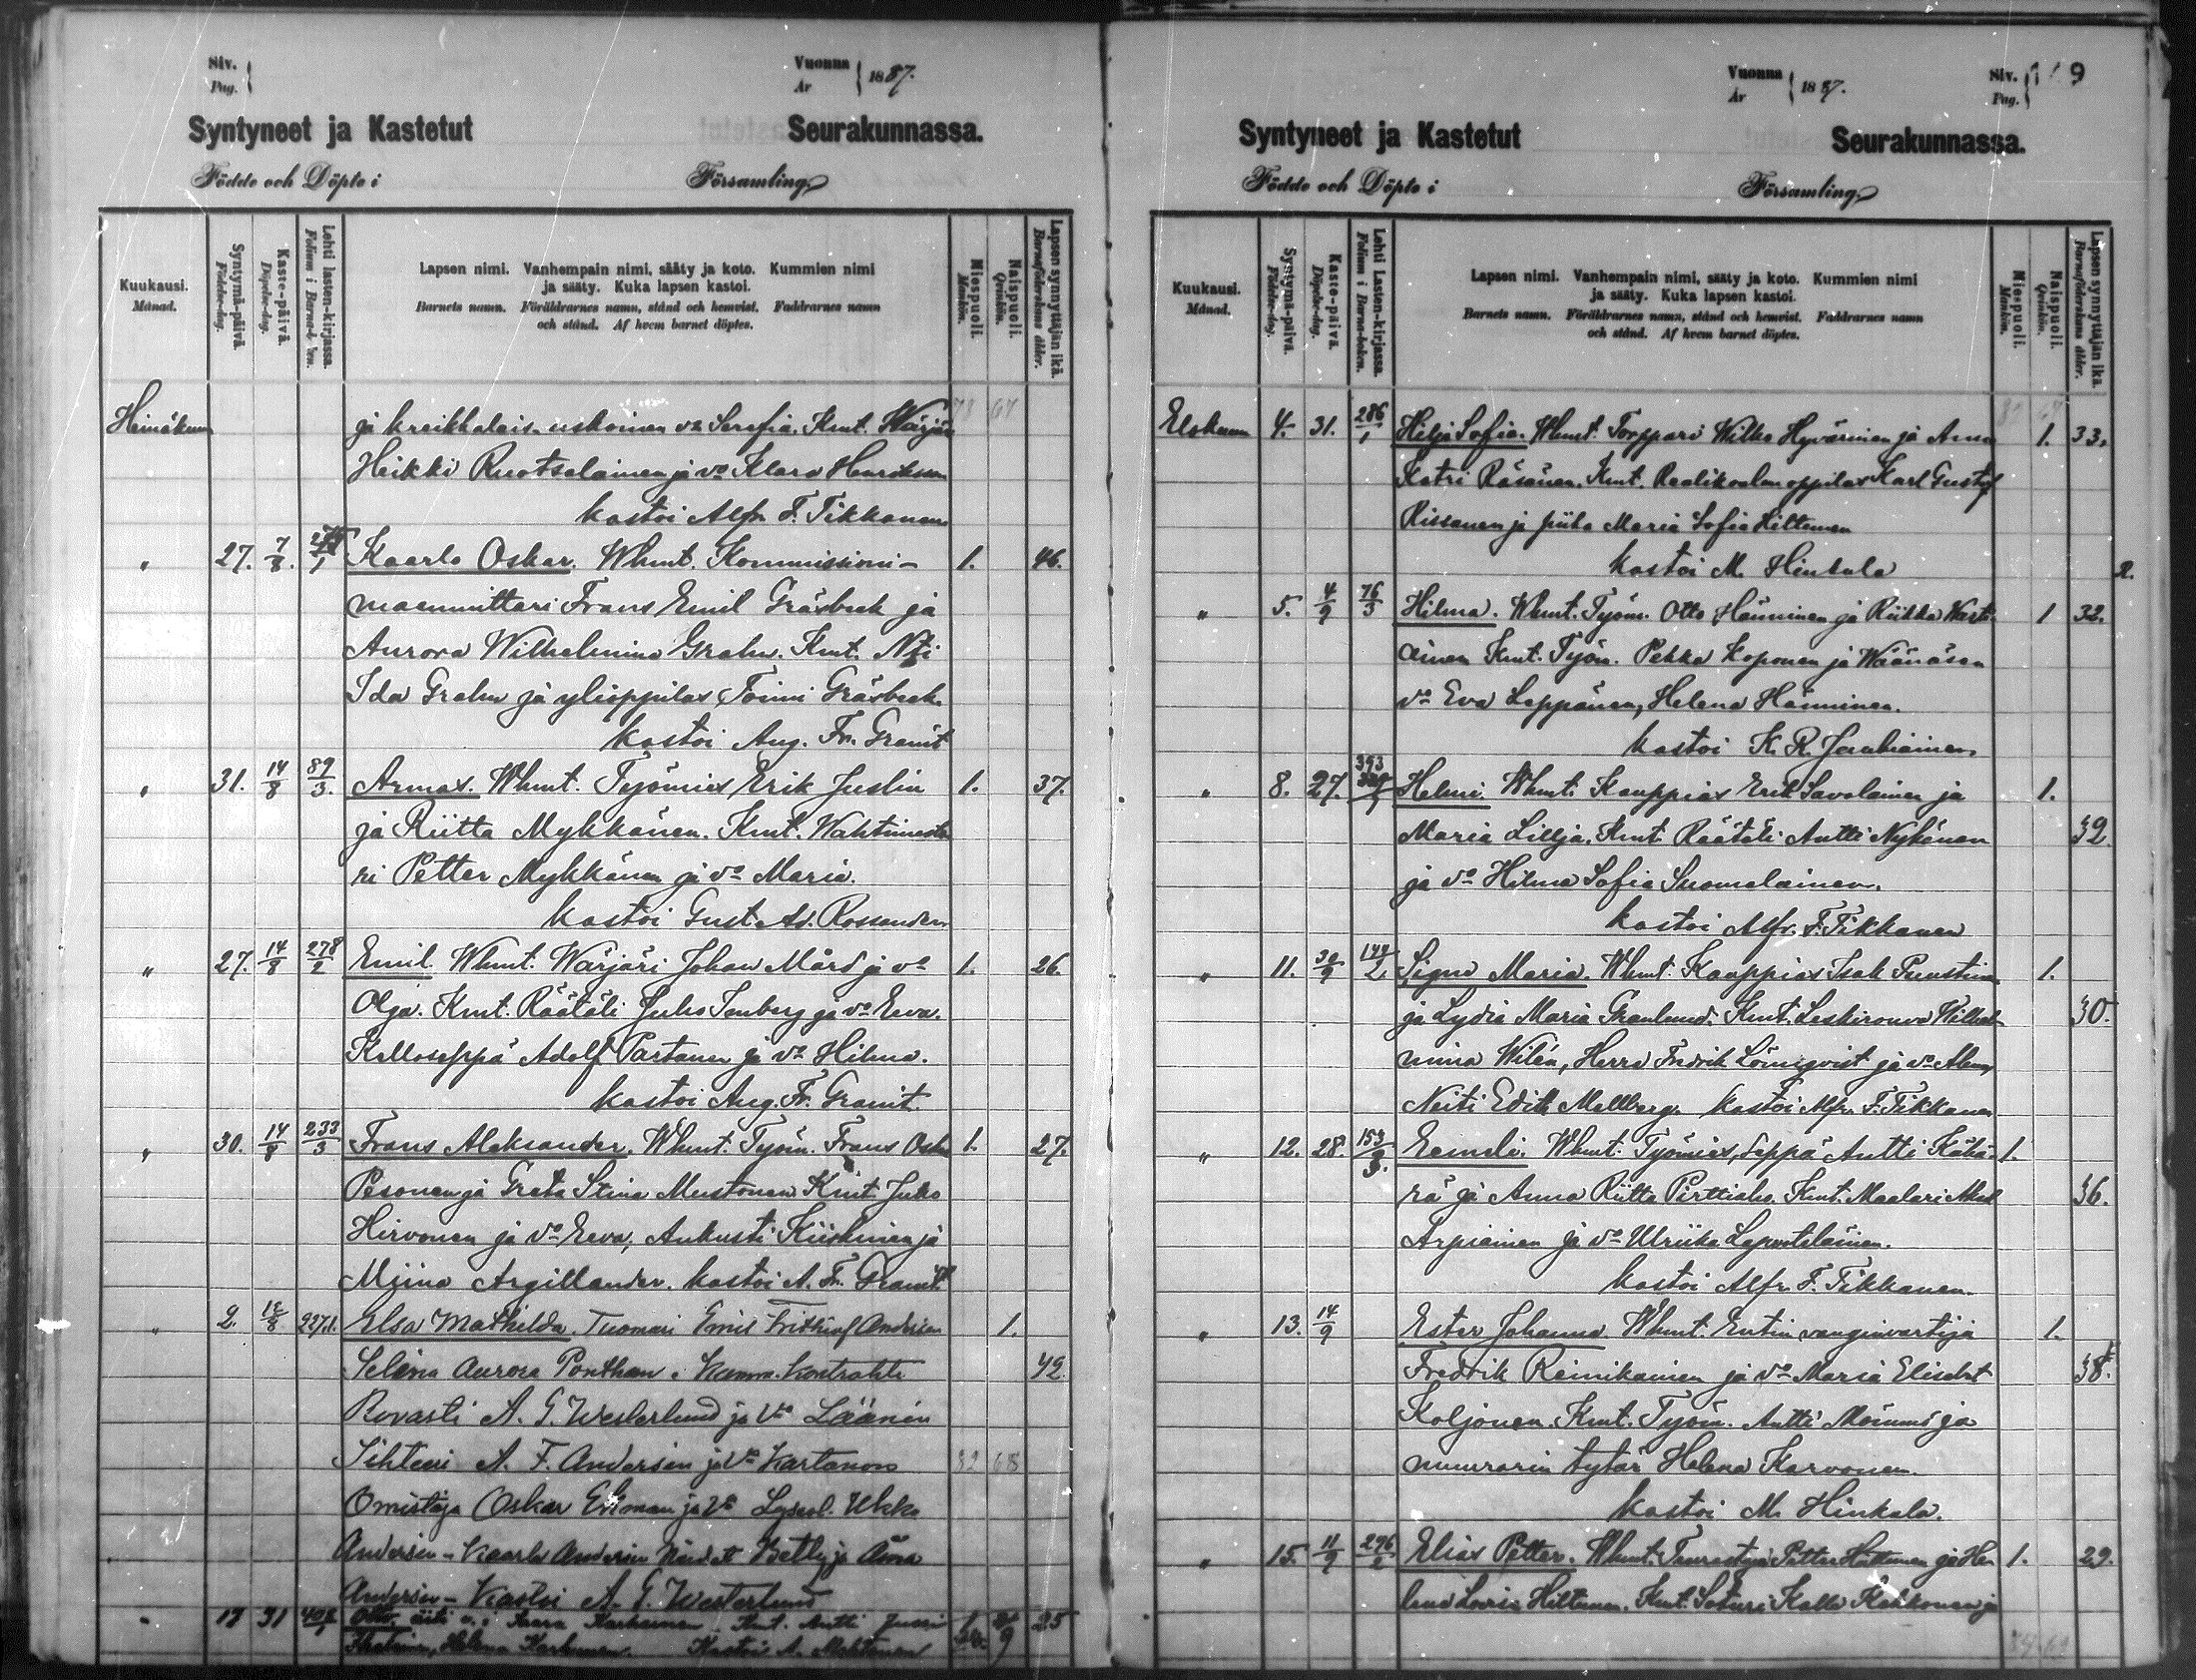 Siv.
Pag.
Vuonna
År
1887.
Syntyneet ja Kastetut Seurakunnassa.
Födde och Döpte i Församling
Kuukausi.
Månad.
Syntymä-päivä.
Födelse-dag.
Kaste-päivä.
Döpelse-dag.
Lehti lasten-kirjassa.
Folium i Barna-boken.
Lapsen nimi. Vanhempain nimi, sääty ja koto. Kummien nimi
ja sääty. Kuka lapsen kastoi.
Barnets namn. Föräldrarnes namn, stånd och hemvist. Faddrarnes namn
och stånd. Af hvem barnet döptes.
Miespuoli.
Mankön.
Naispuoli.
Qvinkön.
Lapsen synnyttäjän ikä.
Barnaföderskans ålder.
Heinäkuu ja kreikkalais-uskoinen vo Serafia. Kmt. Wärjäri
Heikki Ruotsalainen ja vo Klara Henriksson
kastoi Alfr. F. Tikkanen
" 27. 7/8. Kaarlo Oskar. Whmt. Kommissioni- 1. 46.
maanmittari Frans Emil Gräsbeck ja
Aurora Wilhelmina Grahn. Kmt. Nti
Ida Grahn ja ylioppilas Toimi Gräsbeck.
kastoi Aug. Fr. Granit
" 31. 14/8 89/3. Armas. Whmt. Työmies Erik Juslin 1. 37.
ja Riitta Mykkänen. Kmt. Wahtimesta
ri Petter Mykkänen ja vo Maria.
kastoi Gust. Ad. Rossander
" 27. 14/8 278/2 Emil. Whmt. Wärjäri Johan Mård ja vo 1. 26.
Olga. Kmt. Räätäli Juho Isenberg ja vo Eeva.
Kelloseppä Adolf Partanen ja vo Hilma.
kastoi Aug. Fr. Granit.
" 30. 14/8 233/3 Frans Aleksander. Whmt. Työm. Frans Oskar 1. 27.
Pesonen ja Greta Stina Mustonen Kmt. Juho
Hirvonen ja vo Eeva, Aukusti Kiiskinen ja
Miina Argillander. kastoi A. Fr. Granit.
" 2. 18/8 227.1. Elsa Mathilda. Tuomari Emil Frithiof Andersin 1.
Selina Aurora Ponthan. Kumm. kontrahti 42.
Rovasti A. G. Westerlund ja vo Läänin
Sihteeri A. F. Andersin ja vo Kartanon
Omistaja Oskar Ekman ja vo Lyseol. Ukko
Andersin - Kaarlo Andersin Neidet Betty ja Anna
Andersin - Kastoi A. G. Westerlund
" 17 31 Otto. äiti Saara Karhunen Kmt. Antti Jussi 1 25
Helena Karhunen. Kastoi A. Mahtonen
Vuonna
År
1887.
Siv.
Pag.
9
Syntyneet ja Kastetut Seurakunnassa.
Födde och Döpte i Församling
Kuukausi.
Månad.
Syntymä-päivä.
Födelse-dag.
Kaste-päivä.
Döpelse-dag.
Lehti Lasten-kirjassa.
Folium i Barna-boken.
Lapsen nimi. Vanhempain nimi, sääty ja koto. Kummien nimi
ja sääty. Kuka lapsen kastoi.
Barnets namn. Föräldrarnes namn, stånd och hemvist. Faddrarnes namn
och stånd. Af hvem barnet döptes.
Miespuoli.
Mankön.
Naispuoli.
Qvinkön.
Lapsen synnyttäjän ikä.
Barnaföderskans ålder.
Elokuu 4. 31. 286/1 Hilja Sofia. Whmt. Torppari Wilho Hyvärinen ja Anna 1. 33.
Katri Räsänen. Kmt. Realikoulun oppilas Karl Gustaf
Rissanen ja piika Maria Sofia Hiltunen
kastoi M. Hinkula 2.
" 5. 4/9 76/3 Hilma. Whmt. Työm. Otto Hänninen ja Riikka Warti- 1 32.
ainen Kmt. Työm. Pekka Koponen ja Wäänäsen
vo Eva Leppänen, Helena Hänninen.
kastoi K. R. Jauhiainen.
" 8. 27. 393 Helmi. Whmt. Kauppias Erik Savolainen ja 1.
Maria Lillja. Kmt. Räätäli Antti Nykänen 32.
ja vo Hilma Sofia Suomalainen.
kastoi Alfr. F. Tikkanen
" 11. 30/9 Signe Maria. Whmt. Kauppias Isak Puustinen 1.
ja Lydia Maria Granlund. Kmt. Leskirouva Wilhel- 30.
mina Wilén, Herra Fredrik Lönnqvist ja vo Alma,
Neiti Edith Mellberg. kastoi Alfr. F. Tikkanen
" 12. 28. 153/3. Eemeli. Whmt. Työmies, Seppä Antti Kähä- 1.
rä ja Anna Riitta Pirttiaho. Kmt. Maalari 36.
Arpiainen ja vo Ulriika Lapveteläinen.
kastoi Alfr. F. Tikkanen.
" 13. 14/9 Ester Johanna. Whmt. Entin. vanginvartija 1.
Fredrik Reinikainen ja vo Maria Elisabet 38.
Koljonen. Kmt. Työm. Antti ja
muurarin tytär Helena Karvonen.
kastoi M. Hinkula.
" 15. 11/9 296/2 Elias Petter. Whmt. Teurastaja Petter Huttunen ja He- 1. 29.
lena Lovisa Hiltunen. Kmt. Suturi Kalle Kokkonen ja